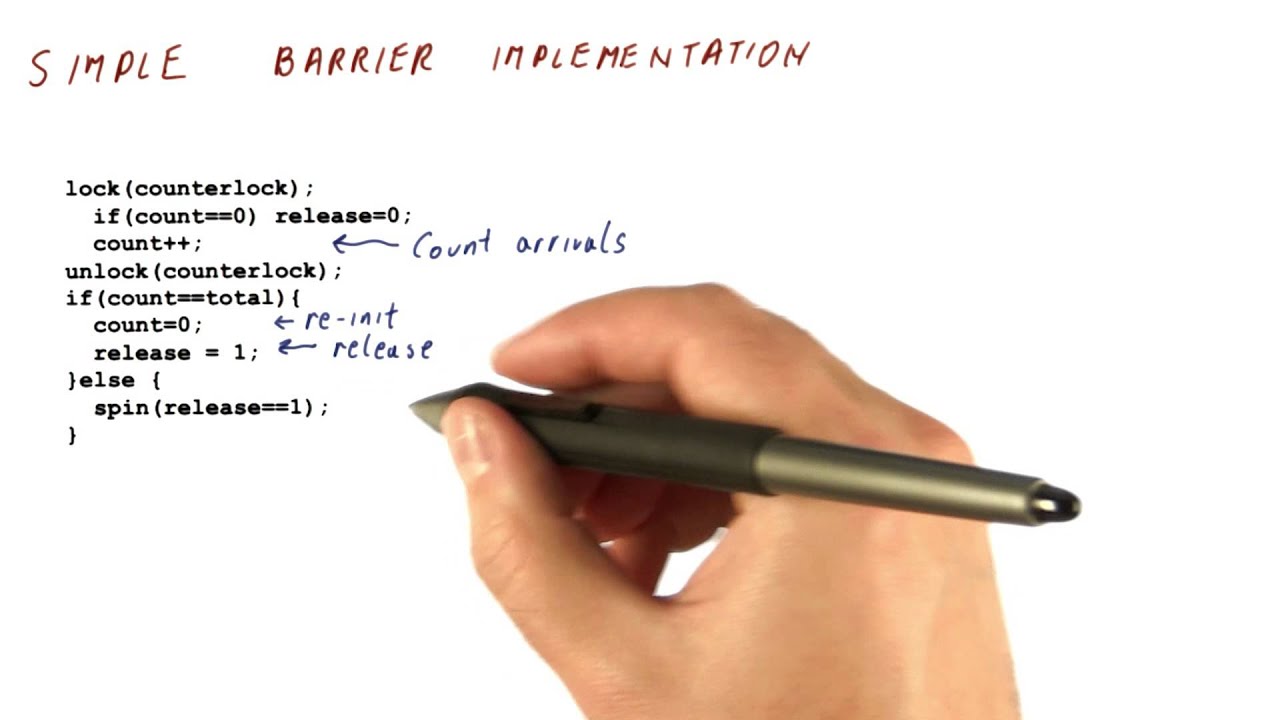 SIMPLE BARRIER IMPLEMENTATION
lock(counterlock);
if(count==0) release=0;
count++; ← Count arrivals
unlock(counterlock);
if(count==total){
count=0; ← re-init
release = 1; ← release
}else {
spin(release==1);
}